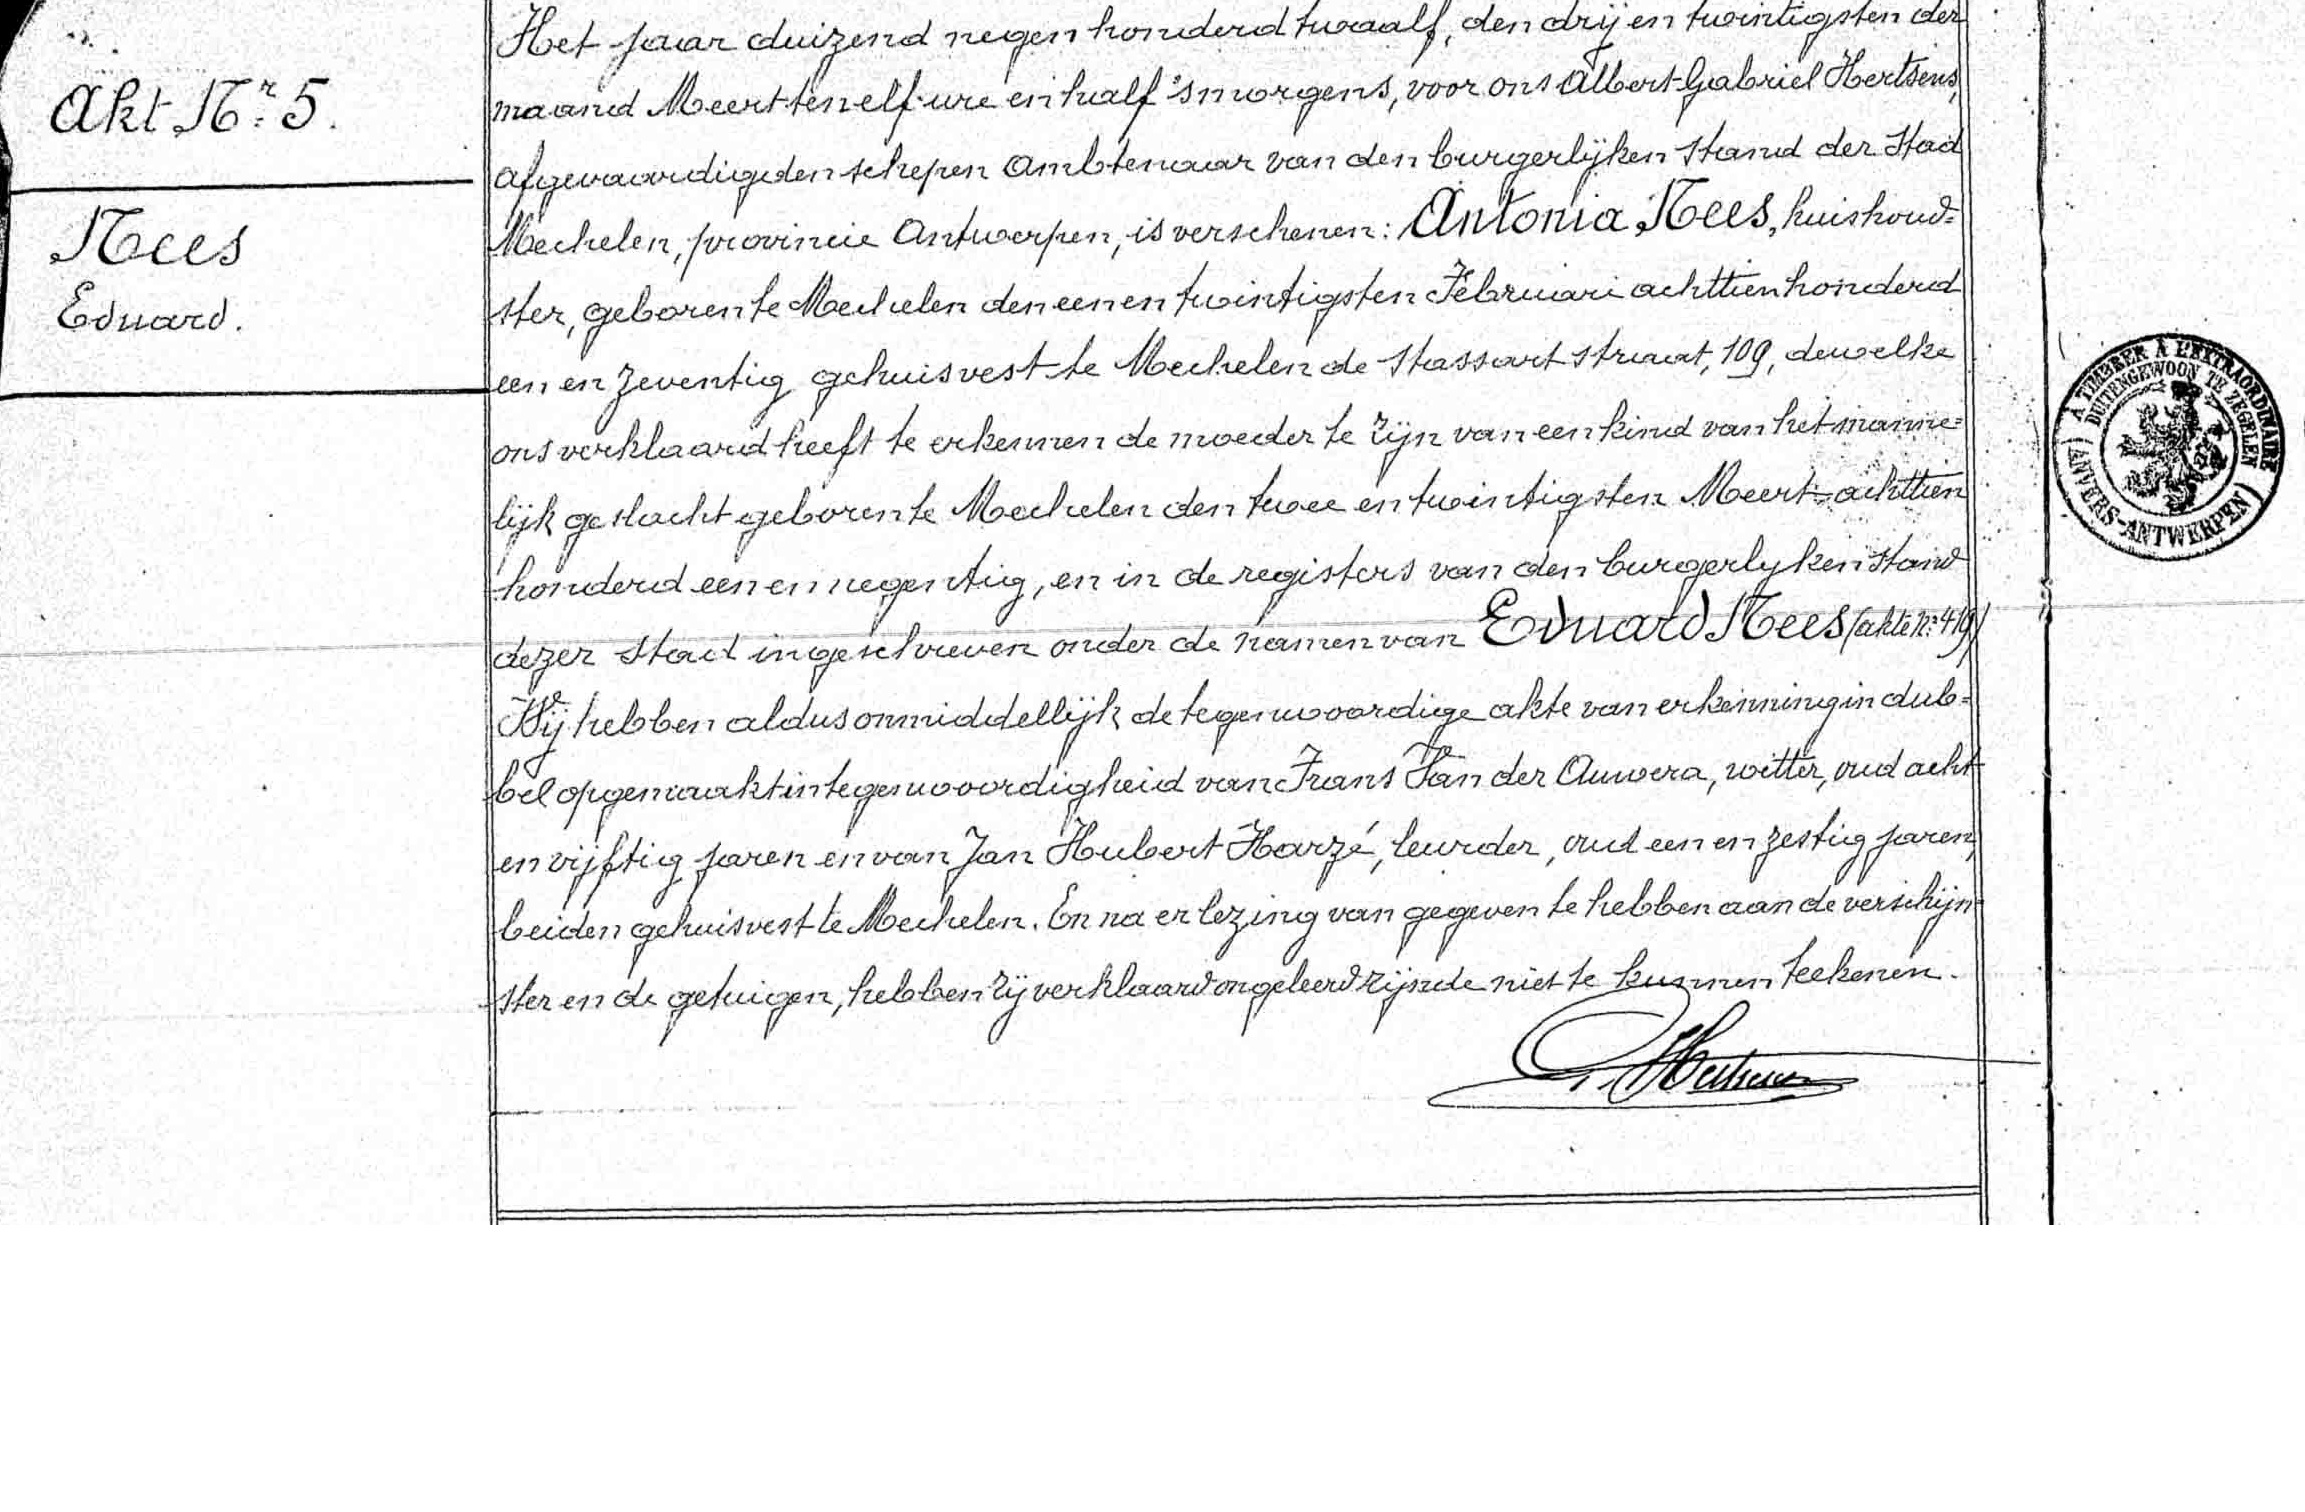 Akt Nr. 5.
Nees
Eduard.
Het jaar duizend negen honderd twaalf, den drij en twintigsten der
maand Meert ten elf ure en half 's morgens, voor ons Albert Gabriel Hertsens,
afgevaardigden schepen Ambtenaar van den burgerlijken stand der Stad
Mechelen, provincie Antwerpen, is verschenen: Antonia Nees, huishoud=
ster, geboren te Mechelen den een en twintigsten Februari achttien honderd
een en zeventig gehuisvest te Mechelen de Stassart straat, 109, dewelke
ons verklaard heeft te erkennen de moeder te zijn van een kind van het manne=
lijk geslacht geboren te Mechelen den twee en twintigsten Meert achttien
honderd een en negentig, en in de registers van den burgerlyken stand
dezer stad ingeschreven onder de namen van Eduard Nees (akte Nr. 419)
Wij hebben aldus onmiddellijk de tegenwoordige akte van erkenning in dub=
bel opgemaakt in tegenwoordigheid van Frans Van der Auwera, witter, oud acht
en vijftig jaren en van Jan Hubert Harzé, leurder, oud een en zestig jaren,
beiden gehuisvest te Mechelen. En na er lezing van gegeven te hebben aan de verschijn=
ster en de getuigen, hebben zij verklaard ongeleerd zijnde niet te kunnen teekenen.
A TIMBRER A L'EXTRAORDINAIRE
BUITENGEWOON TE ZEGELEN
(ANVERS-ANTWERPEN)